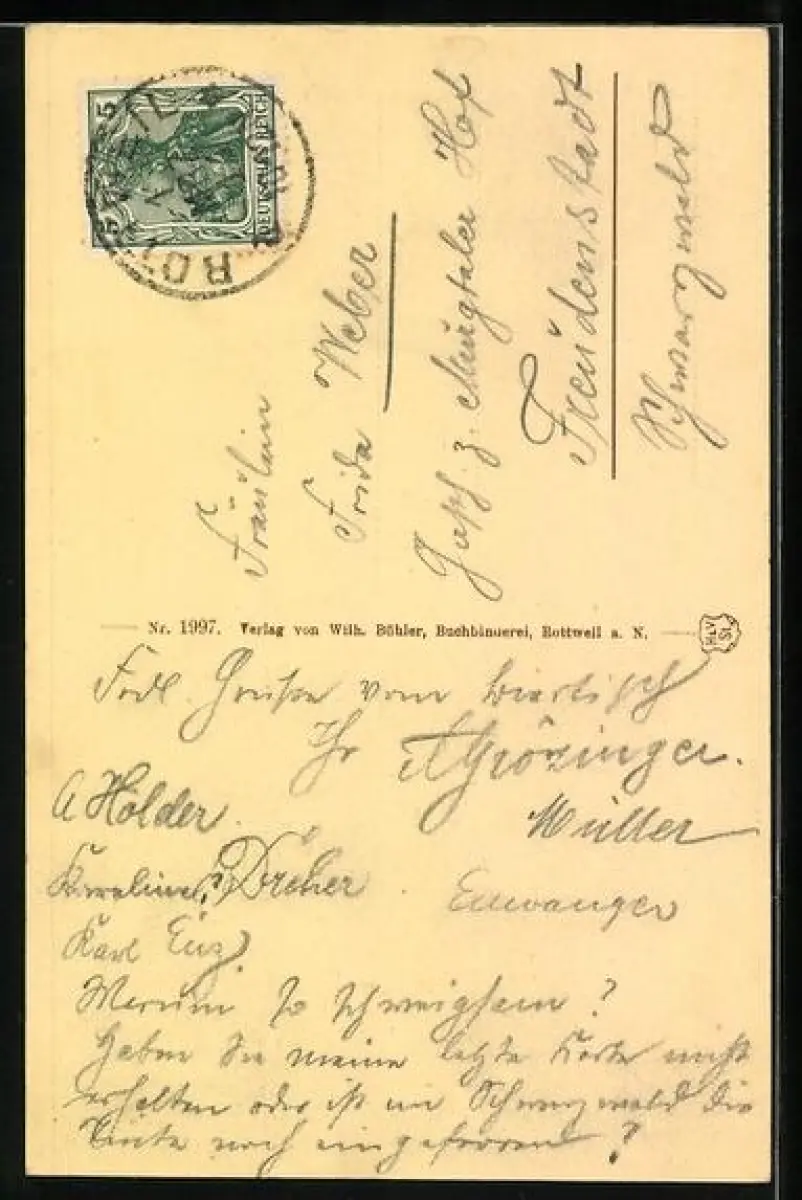 5 5
DEUTSCHES REICH
ROTTWEIL
Fräulein
Frida Weber
Gasth. z. Murgtaler Hof
Freudenstadt
Schwarzwald
Nr. 1997. Verlag von Wilh. Bühler, Buchbinderei, Rottweil a. N.
H&V St.
Frdl. Grüße vom Biertisch
Ihr A Grözinger.
A Hölder. Müller
Karoline Dreher. Ellwanger
Karl Enz
Warum so schweigsam?
Haben Sie meine letzte Karte nicht
erhalten oder ist im Schwarzwald die
Tinte noch eingefroren?